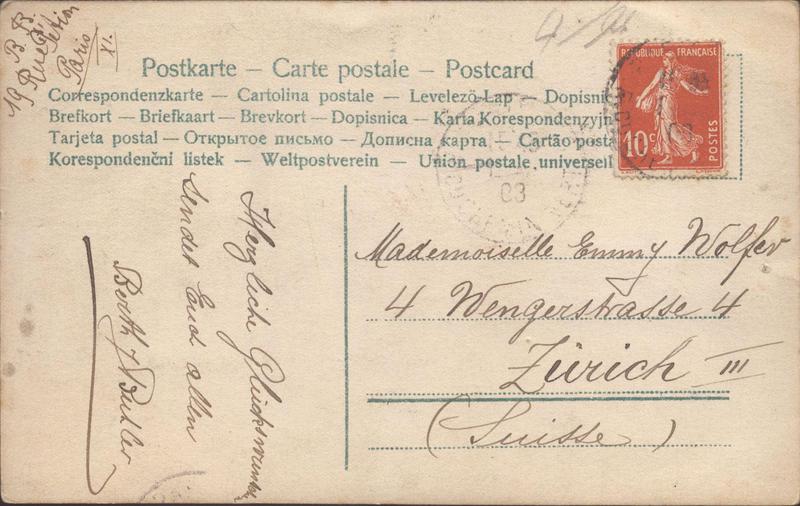 B. B.
19 Rue Pétion
Paris
XI.
Postkarte – Carte postale – Postcard
Correspondenzkarte – Cartolina postale – Levelezö-Lap – Dopisni
Brefkort – Briefkaart – Brevkort – Dopisnica – Karta Korespondenzyjn
Tarjeta postal – Открытое письмо – Дописна карта – Cartão posta
Korespondenčni listek – Weltpostverein – Union postale universell
REPUBLIQUE FRANÇAISE
10 c
POSTES
Herzliche Glückswünsche
sendet Euch allen
Berth
Mademoiselle Emmy Wolfer
4 Wengerstrasse 4
Zürich III
(Suisse)